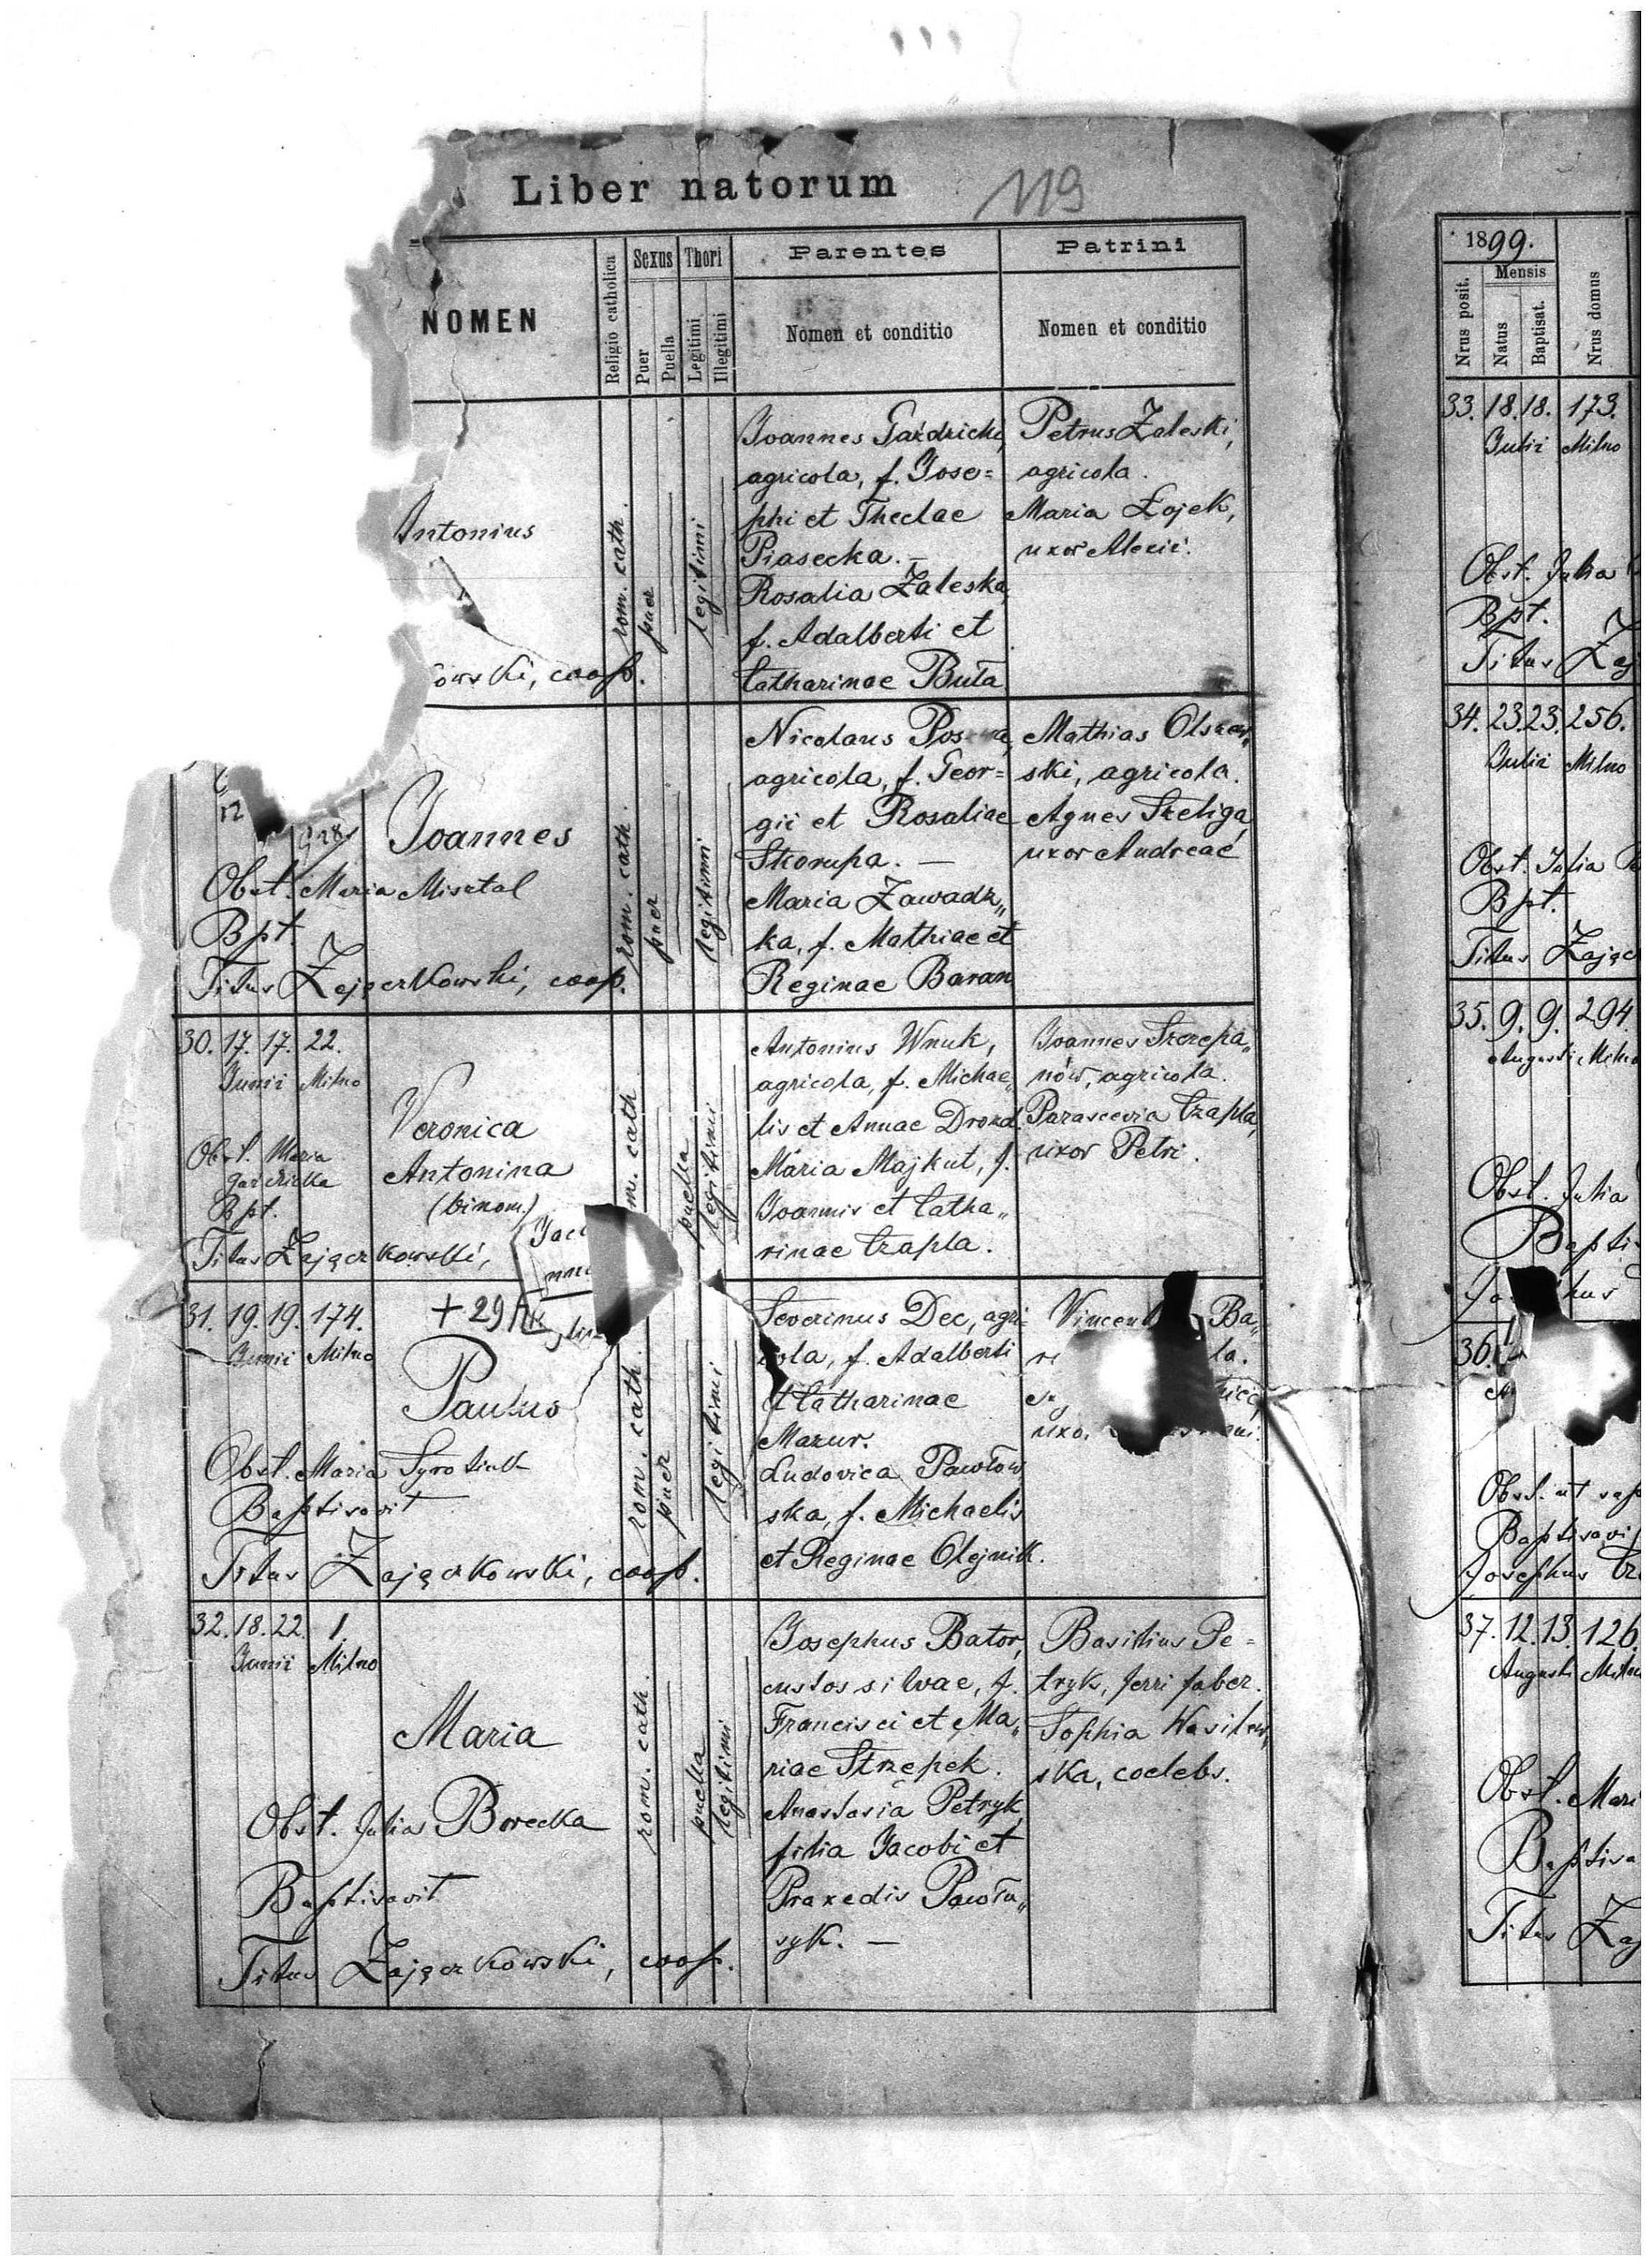 Liber natorum 119
NOMEN
Religio catholica
Sexus
Puer
Puella
Thori
Legitimi
Illegitimi
Parentes
Nomen et conditio
Patrini
Nomen et conditio
Antonius
owski, coop.
rom. cath.
puer
legitimi
Joannes
agricola, f. Jose=
phi et Theclae
Piasecka. —
Rosalia Zaleska,
f. Adalberti et
Catharinae Buła
Petrus Zaleski,
agricola.
Maria Łojek,
uxor Alexii.
Joannes
Obst. Maria Misztal
Bpt.
Titus Zajączkowski, coop.
rom. cath
puer
legitimi
Nicolaus
agricola, f. Geor=
gii et Rosaliae
Skorupa. —
Maria Zawadz„
ka, f. Mathiae et
Reginae Baran
Mathias Olszew„
ski, agricola.
Agnes Szeliga,
uxor Andreae
30. 17. 17. 22.
Junii Milno
Veronica
Antonina
(binom.)
Obst. Maria
Gaździcka
Bpt.
Titus Zajączkowski,
m. cath
puella
legitimi
Antonius Wnuk,
agricola, f. Michae„
lis et Annae Drozd.
Maria Majkut, f.
Joannis et Catha„
rinae Czapla.
Joannes Szczepa„
nów, agricola.
Parascevia Czapla,
uxor Petri.
31. 19. 19. 174.
Junii Milno
+ 29
Paulus
Obst. Maria Syrotiuk
Baptisavit
Titus Zajączkowski, coop.
rom. cath.
puer
legitimi
Severinus Dec, agri=
cola, f. Adalberti
et Catharinae
Mazur.
Ludovica Pawłow
ska, f. Michaelis
et Reginae Olejnik.
Ba„
la.
32. 18. 22. 1.
Junii Milno
Maria
Obst. Julia Borecka
Baptisavit
Titus Zajączkowski, coop.
rom. cath.
puella
legitimi
Josephus Bator,
custos silvae, f.
Francisci et Ma„
riae Strzepek.
Anastasia Petryk
filia Jacobi et
Praxedis Pawłu„
syk. —
Basilius Pe=
tryk, ferri faber.
Sophia Wasilew„
ska, coelebs.
1899.
Nrus posit.
Mensis
Natus
Baptisat.
Nrus domus
33. 18. 18. 173.
Julii Milno
Obst. Julia
Bpt.
Titus Zaj
34. 23. 23. 256.
Julii Milno
Obst. Julia
Bpt.
Titus Zając
35. 9. 9. 294.
Augusti Milno
Obst. Julia
Bapti
36.
Obst. ut
Baptisavi
Josephus
37. 12. 13. 126.
Augusti Milno
Obst. Mari
Baptisa
Titus Zaj